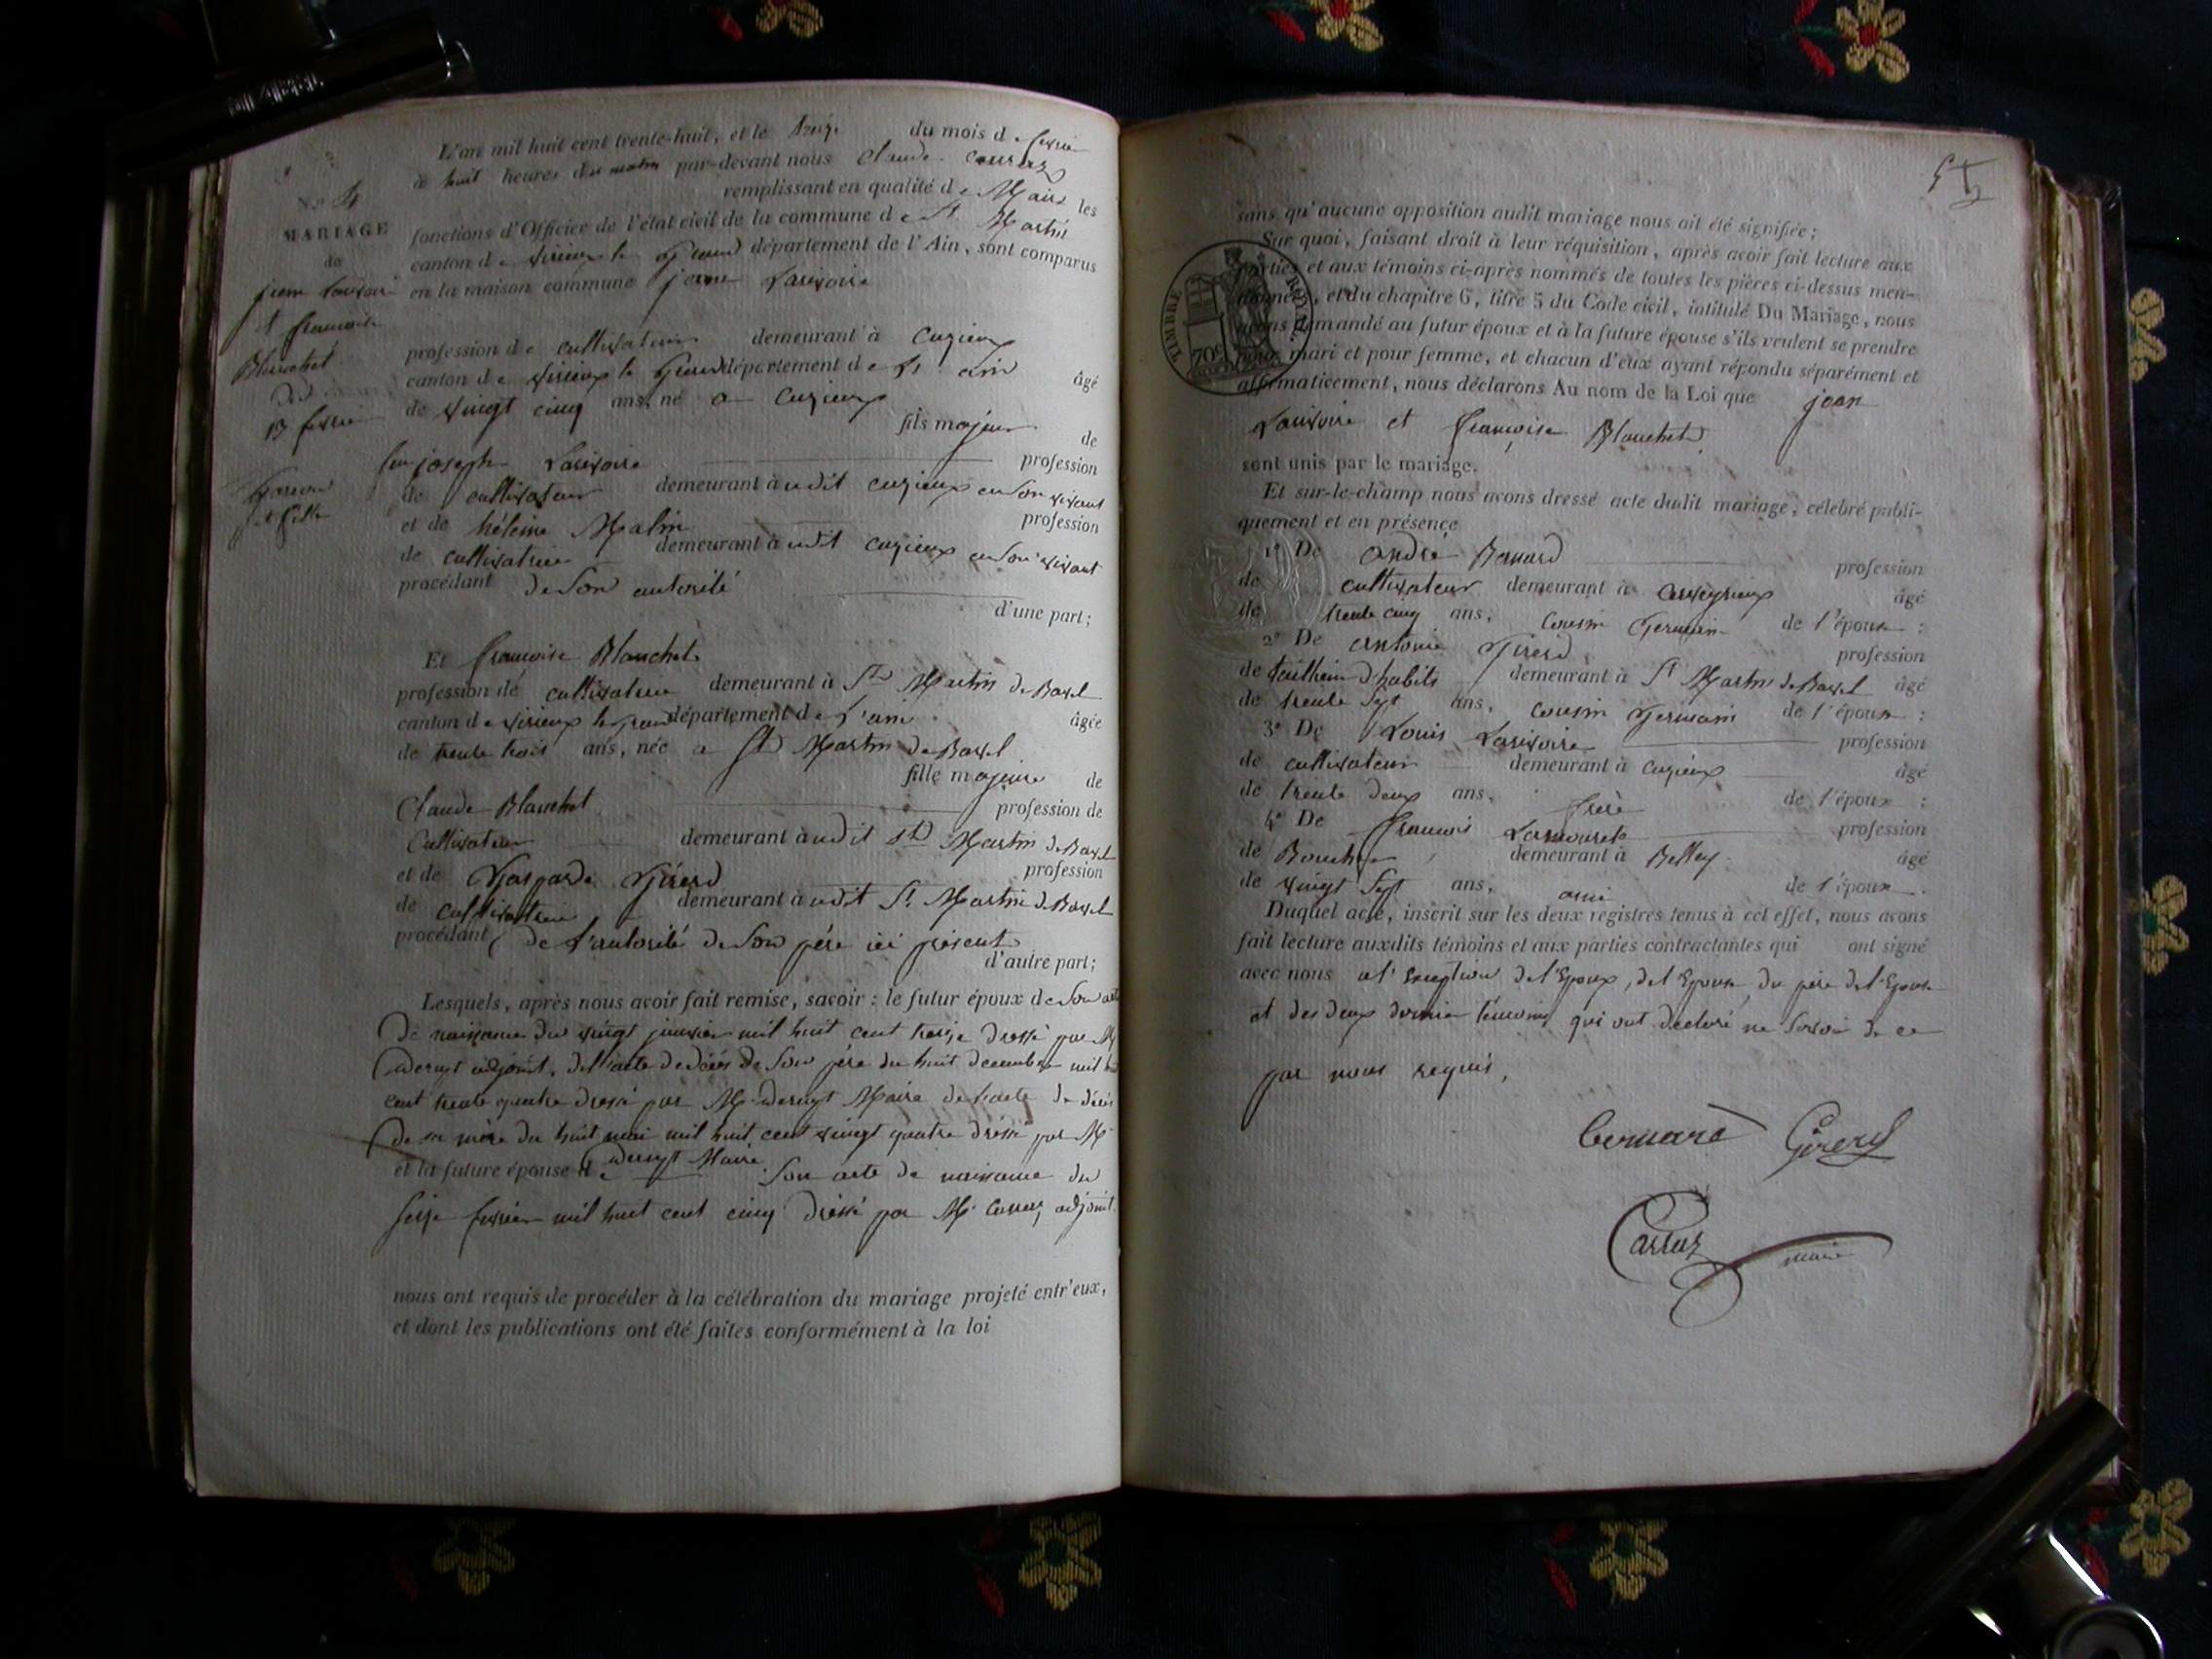 L'an mil huit cent trente-huit, et le treize du mois de fevrier
à huit heures du matin par-devant nous Claude Carraz
remplissant en qualité de Maire les
fonctions d'Officier de l'état civil de la commune de St Martin
canton de virieux le Grand département de l'Ain, sont comparus
en la maison commune jean Larivoire
profession de cultivateur demeurant à Cuzieux
canton de virieux le Grand département de l'ain âgé
de vingt cinq ans, né a Cuzieux
fils majeur de
feu joseph Larivoire profession
de cultivateur demeurant à udit cuzieux en son vivant
et de héleine Malin profession
de cultivatrice demeurant à udit cuzieux en son vivant
procédant de son autorité
d'une part;
Et francoise Blanchet
profession de cultivatrice demeurant à St Martin de Bavel
canton de virieux le grand département de l'ain âgée
de trente trois ans, née a St Martin de Bavel
fille majeure de
Claude Blanchet profession de
Cultivateur demeurant à udit St Martin de Bavel
et de Gasparde Girerd profession
de cultivatrice demeurant à udit St Martin de Bavel
procédant de l'autorité de son père ici présent
d'autre part;
Lesquels, après nous avoir fait remise, savoir: le futur époux de son acte
de naissance du vingt janvier mil huit cent treize dressé par M
adjoint, de l'acte de décès de son père du huit decembre mil huit
cent trente quatre dressé par Mr Maire de l'acte de décès
de sa mère du huit mai mil huit cent vingt quatre dressé par Mr
Maire.
et la future épouse de son acte de naissance du
seize fevrier mil huit cent cinq dressé par Mr Carraz adjoint.
nous ont requis de procéder à la célébration du mariage projeté entr'eux,
et dont les publications ont été faites conformément à la loi
N.o 4
MARIAGE
de
jean Larivoire
et francoise
Blanchet
13 fevrier
Garcon
et fille
sans qu'aucune opposition audit mariage nous ait été signifiée;
Sur quoi, faisant droit à leur réquisition, après avoir fait lecture aux
parties et aux témoins ci-après nommés de toutes les pièces ci-dessus men-
tionnées, et du chapitre 6, titre 5 du Code civil, intitulé Du Mariage, nous
avons demandé au futur époux et à la future épouse s'ils veulent se prendre
pour mari et pour femme, et chacun d'eux ayant répondu séparément et
affirmativement, nous déclarons Au nom de la Loi que jean
Larivoire et françoise Blanchet
sont unis par le mariage.
Et sur-le-champ nous avons dressé acte dudit mariage, célébré publi-
quement et en présence
1o De andré Bernard profession
de cultivateur demeurant à âgé
de trente cinq ans, cousin Germain de l'épouse;
2o De antoine Girerd profession
de tailleur d'habits demeurant à St Martin de Bavel âgé
de trente sept ans, cousin Germain de l'épouse;
3o De Louis Larivoire profession
de cultivateur demeurant à cuzieux âgé
de trente deux ans, frère de l'époux;
4o De francois profession
de Boucher demeurant à Belley âgé
de vingt sept ans, ami de l'époux.
Duquel acte, inscrit sur les deux registres tenus à cet effet, nous avons
fait lecture auxdits témoins et aux parties contractantes qui ont signé
avec nous a l'exception de l'epoux, de l'epouse, du père de l'epouse
et des deux dernier témoins qui ont declaré ne savoir de ce
par nous requis.
bernard Girerd
Carraz maire
TIMBRE ROYAL
70c